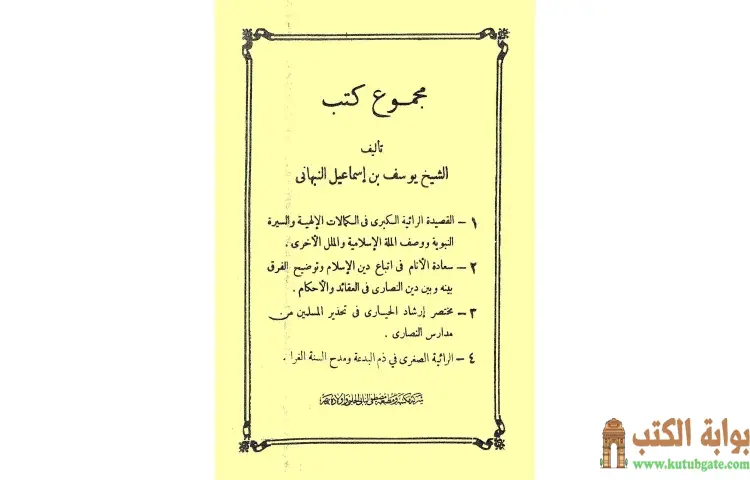 مجموع كتب
تأليف
الشيخ يوسف بن إسماعيل النبهانى
١ – القصيدة الرائية الكبرى فى الكمالات الإلهية والسيرة
النبوية ووصف الملة الإسلامية والملل الأخرى .
٢ – سعادة الأنام فى اتباع دين الإسلام وتوضيح الفرق
بينه وبين دين النصارى فى العقائد والأحكام .
٣ – مختصر إرشاد الحيارى فى تحذير المسلمين من
مدارس النصارى .
٤ – الرائية الصغرى في ذم البدعة ومدح السنة الغرا .
شركة مكتبة ومطبعة مصطفى البابى الحلبى وأولاده بمصر
بوابة الكتب
www.kutubgate.com